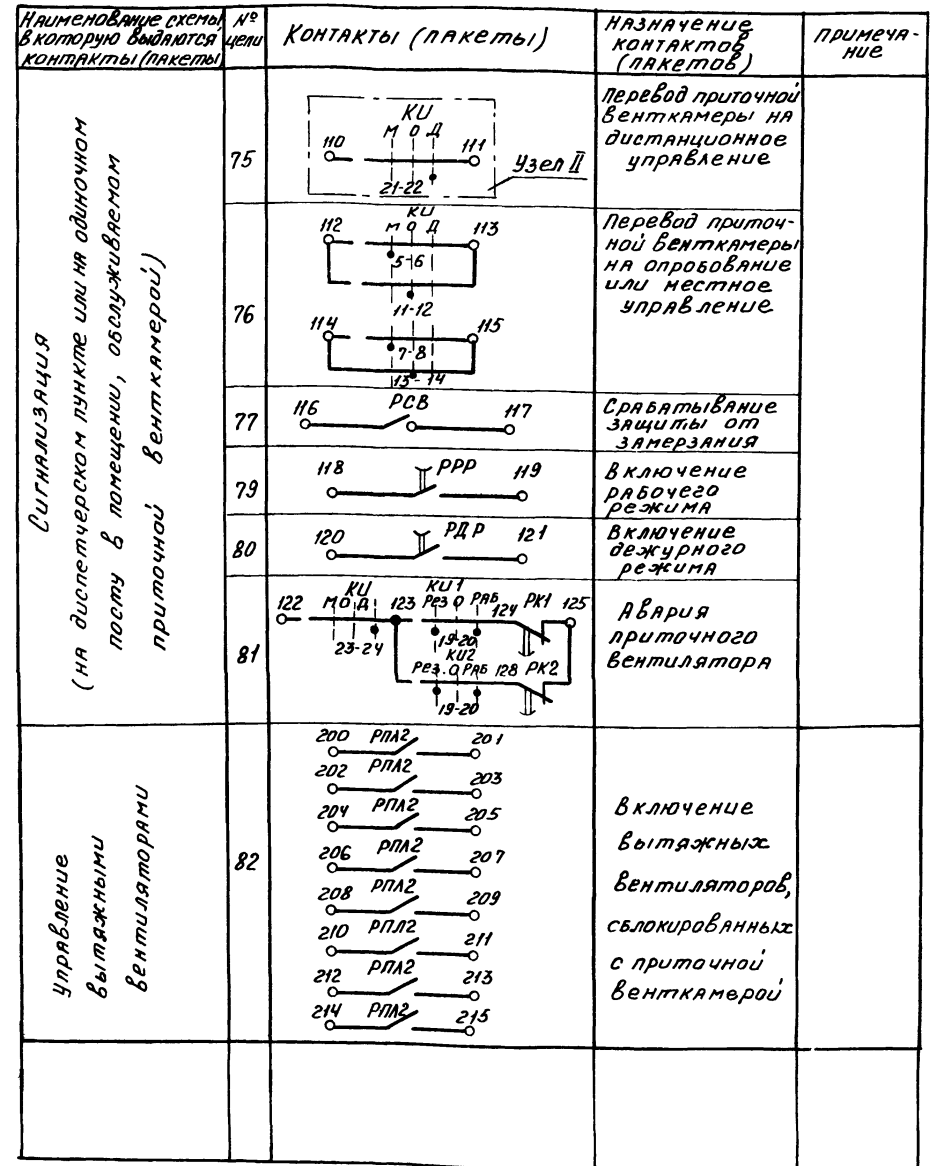 Наименование схемы
в которую выдаются
контакты (пакеты
№
цепи
Контакты (пакеты)
Назначение
контактов
(пакетов)
Примеча-
ние
Сигнализация
(на диспетчерском пункте или на одиночном
посту в помещении, обслуживаемом
приточной венткамерой)
75
КИ
М О Д
110
111
21-22
Узел II
Перевод приточной
венткамеры на
дистанционное
управление
76
КИ
112
М О Д
113
5-6
11-12
114
115
7-8
13-14
Перевод приточ-
ной венткамеры
на опробование
или местное
управление
77
116
РСВ
117
Срабатывание
защиты от
замерзания
79
118
РРР
119
Включение
рабочего
режима
80
120
РДР
121
Включение
дежурного
режима
81
КИ
КИ1
122
М О Д
123
Рез О Раб
124
РК1
125
23-24
19-20
КИ2
Рез. О Раб
128
РК2
19-20
Авария
приточного
вентилятора
Управление
вытяжными
вентиляторами
82
200 РПЛ2 201
202 РПЛ2 203
204 РПЛ2 205
206 РПЛ2 207
208 РПЛ2 209
210 РПЛ2 211
212 РПЛ2 213
214 РПЛ2 215
Включение
вытяжных
вентиляторов,
сблокированных
с приточной
венткамерой